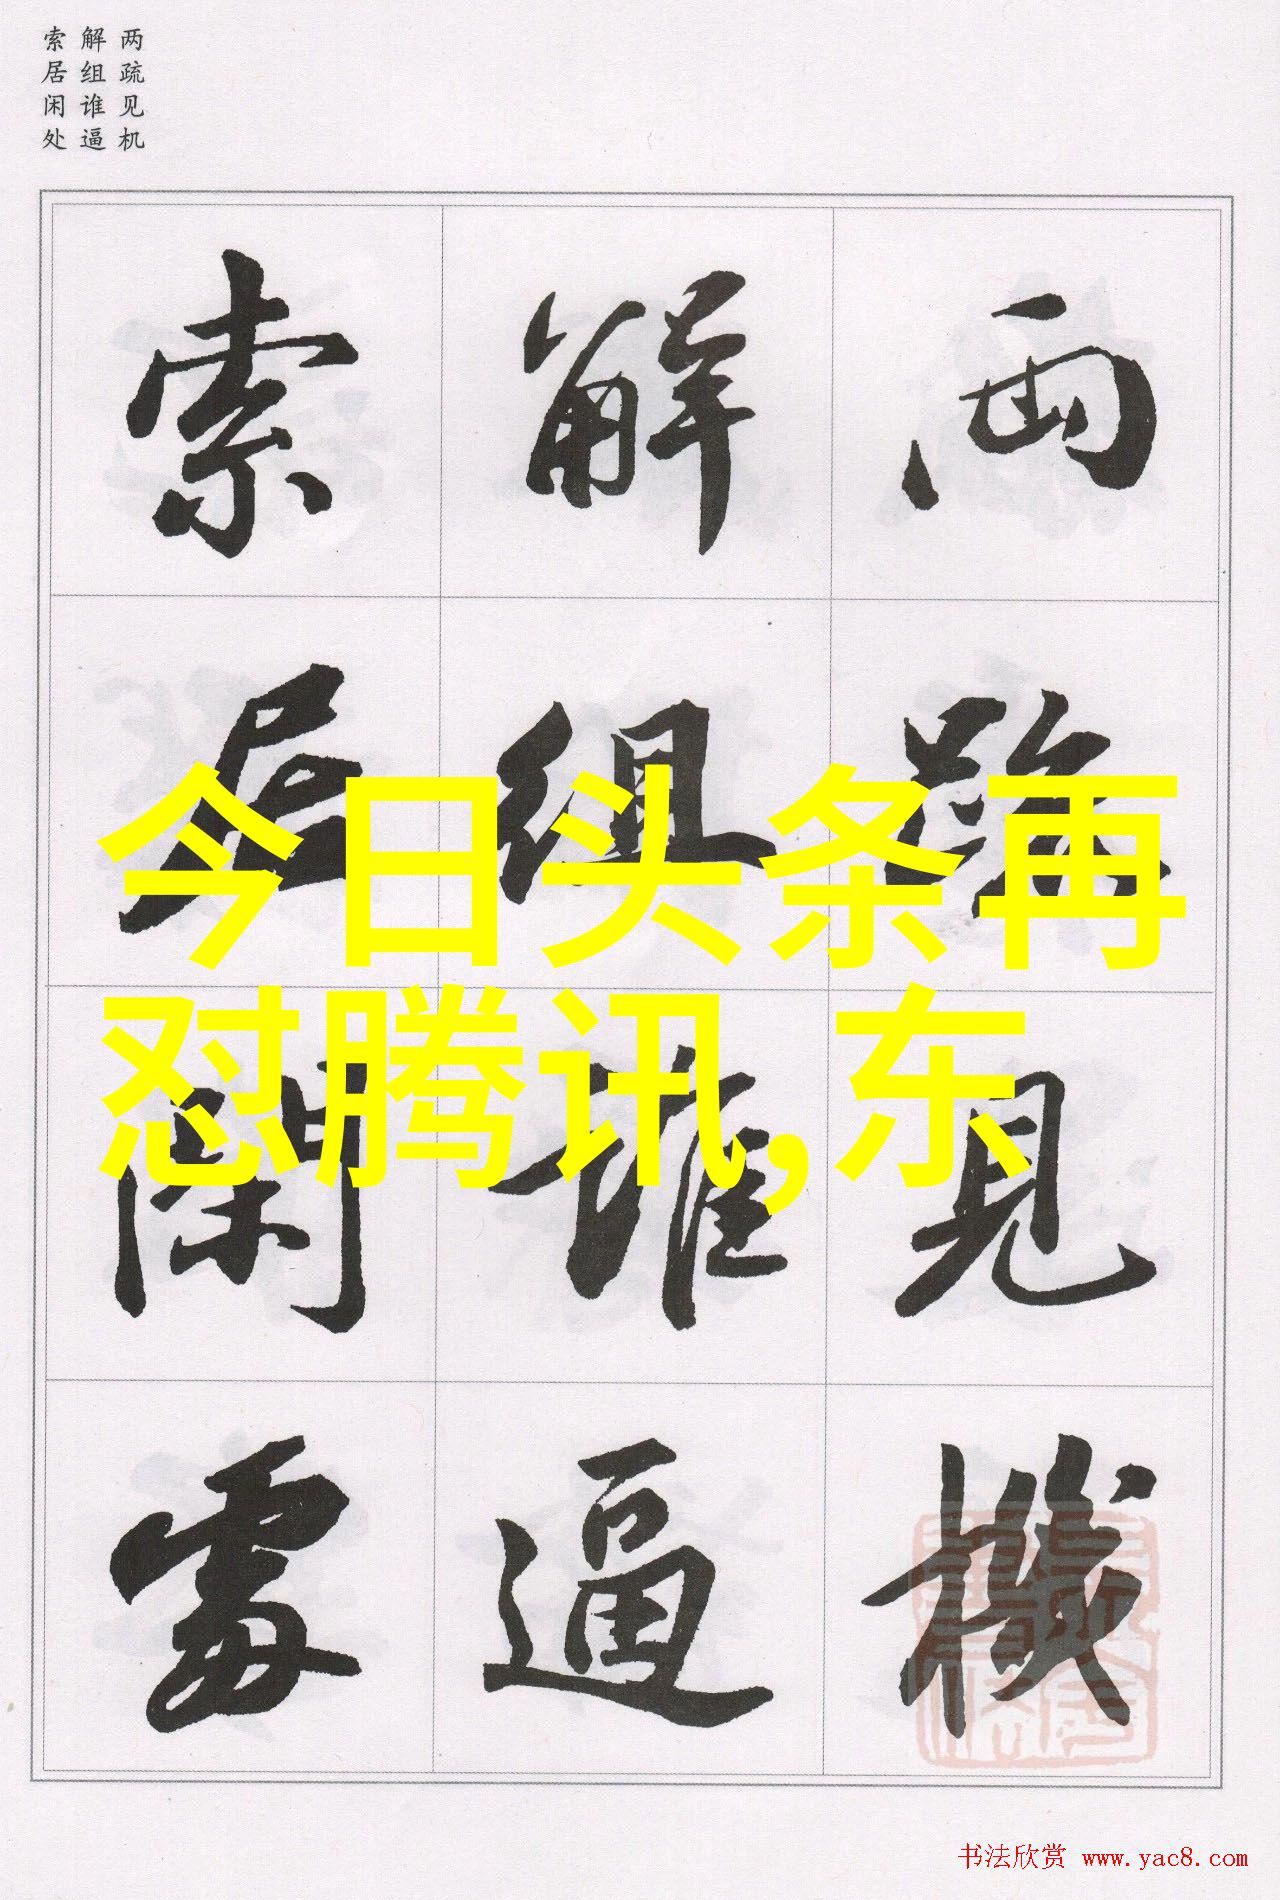 两疏见机
解组谁逼
索居闲处
两疏見機
解組誰逼
索居閑處
今日头条再
怼腾讯,东
书法欣赏 www.yac8.com